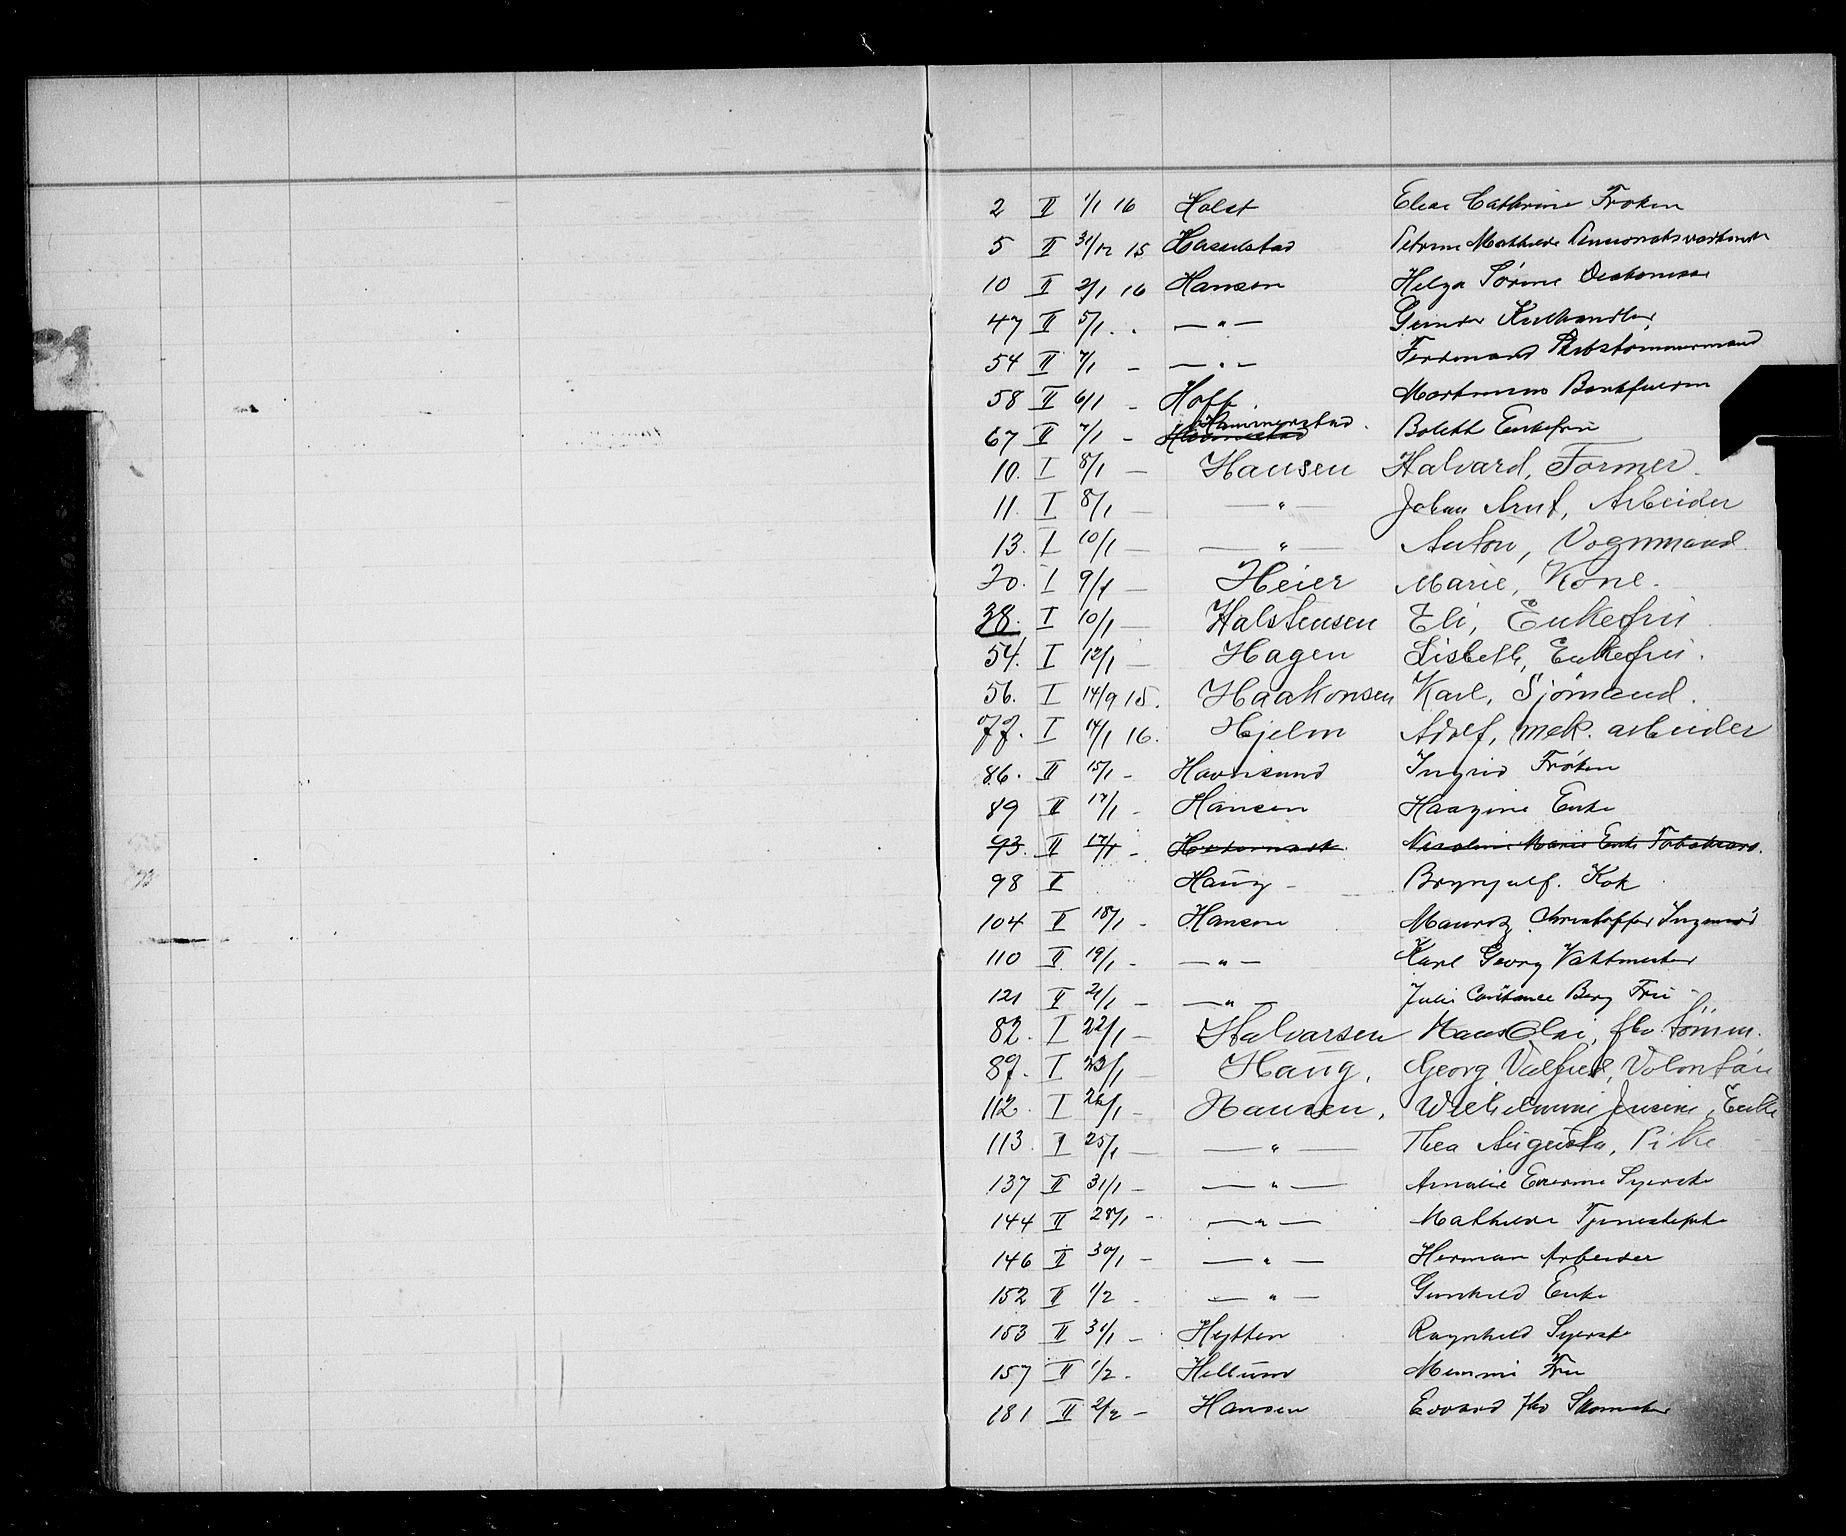 2 II 1/1 16 Holst Elise Cathrine Frøken
5 II 31/12 15 Haselstad Petrine Mathilde
10 II 2/1 16 Hansen Helga Sørine Diakonisse
47 II 5/1 - — " —
54 II 7/1 - — " — Ferdinand
58 II 6/1 - Hoff
67 II 7/1 - Hammerstad Boleth Enkefru
10. I 8/1 — Hansen Halvard, Former.
11. I 8/1 — — " — Johan Arnt, Arbeider
13. I 10/1 — — " — Anton, Vognmand.
20. I 9/1 — Heier Marie, Kone.
38. I 10/1 — Halstensen Eli, Enkefru
54. I 12/1 — Hagen Lisbeth, Enkefru.
56. I 14/9 15. Haakonsen Karl, Sjömand.
77. I 14/1 16. Hjelm Adolf, mek. arbeider
86. II 15/1 - Havnsund Ingrid Frøken
89 II 17/1 - Hansen Haagine Enke
93. II 17/1 - Marie Enke
98 II Haug Brynjulf. Kok
104 II 18/1 - Hansen Mauritz Christoffer Ingeniør
110 II 19/1 - — " — Karl Georg Vaktmester
121 II 21/1 - — " — Julie Constance Berg Fru
82. I 22/1 — Halvarsen Hans Olai, fhv. tömm.
87. I 23/1 — Haug, Georg Valfred, Volontär
112. I 26/1 - Hansen, Wilhelmine Jensine, Enke
113. I 25/1 — — " — Thea Augusta, Pike
137 II 31/1 - — " — Amalie Syerske
144 II 28/1 - — " — Mathilde Tjenestepike
146 II 30/1 - — " — Herman Arbeider
152 II 1/2 - — " — Gunhild Enke
153 II 31/1 - Hytten Ragnhild Syerske
157 II 1/2 - Hellum Mimmi Fru
181 II 2/2 - Hansen Edvard fhv Skomaker